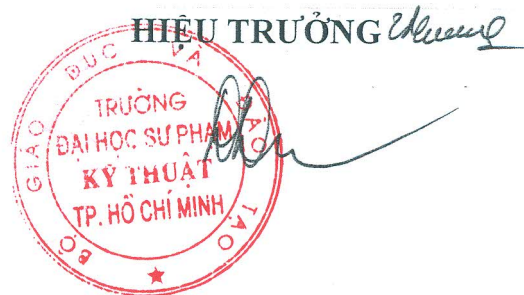 HIỆU TRƯỞNG
BỘ GIÁO DỤC VÀ ĐÀO TẠO
TRƯỜNG
ĐẠI HỌC SƯ PHẠM
KỸ THUẬT
TP. HỒ CHÍ MINH